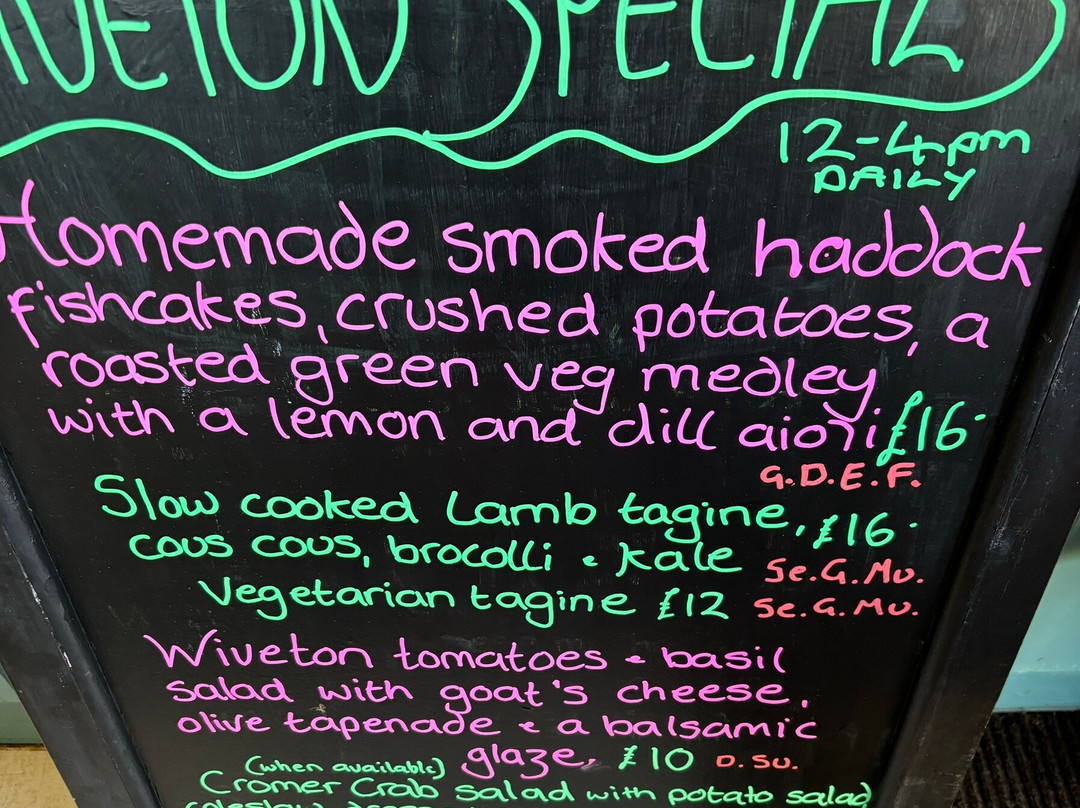 SPECIALS
12-4pm
DAILY
Homemade smoked haddock
fishcakes, crushed potatoes, a
roasted green veg medley
with a lemon and dill aioli £16
G.D.E.F.
Slow cooked Lamb tagine, £16
cous cous, brocolli & kale Se.G.Mu.
Vegetarian tagine £12 Se.G.Mu.
Wiveton tomatoes & basil
salad with goat's cheese,
olive tapenade & a balsamic
glaze, £10 D.SU.
(when available)
Cromer Crab salad with potato salad